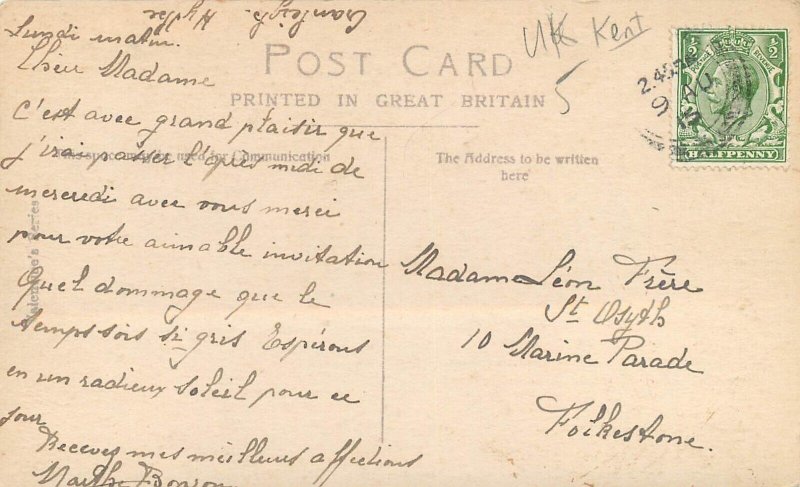 Cranleigh.
Hythe
Lundi matin.
Chère Madame
C'est avec grand plaisir que
j'irai passer l'après midi de
mercredi avec vous merci
pour votre aimable invitation
Quel dommage que le
temps sois si gris Espérons
en un radieux soleil pour ce
jour
Recevez mes meilleurs affections
Marthe
POST CARD
PRINTED IN GREAT BRITAIN
This space may be used for Communication
The Address to be written
here
Valentine's Series
UK Kent
5
Madame Léon Frère
St Osyth
10 Marine Parade
Folkestone.
½ ½
HALFPENNY
2.45